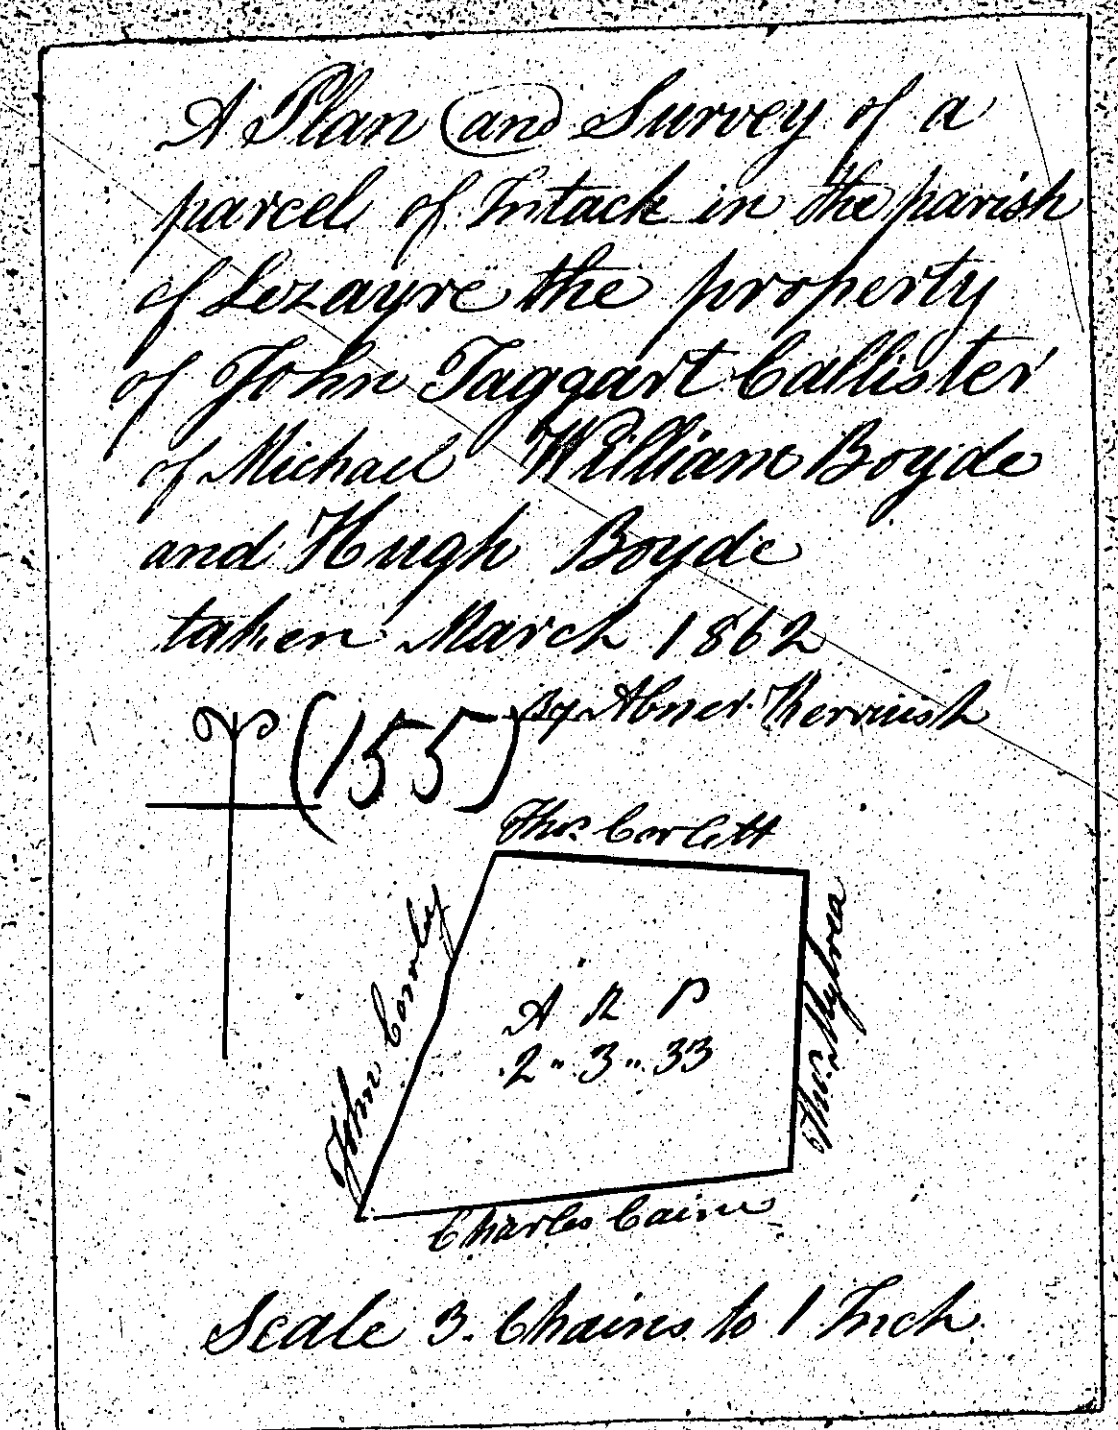 A Plan and Survey of a
parcel of Intack in the parish
of Lezayre the property
of John Taggart Callister
of Michael William Boyde
and Hugh Boyde
taken March 1862
By Abner Kerruish
(155)
Thos Corlett
John Cowley
Thos. Mylrea
A R P
2 " 3 " 33
Charles Caine
Scale 3. Chains to 1 Inch.